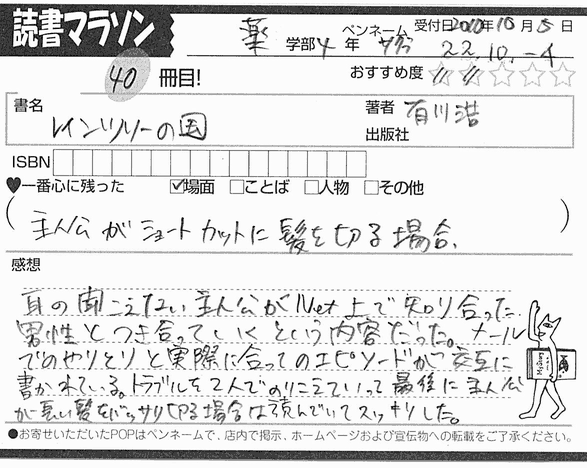 読書マラソン
薬 学部 4 年 ペンネーム 受付日 2010年10月5日
22.10.-4
40 冊目! おすすめ度 ☆☆☆☆☆
書名 レインツリーの国
著者 有川浩
出版社
ISBN
♥一番心に残った ☑場面 □ことば □人物 □その他
(主人公がショートカットに髪を切る場合.)
感想
耳の聞こえない主人公がNet上で知り合った
男性とつき合っていくという内容だった。メール
でのやりとりと実際に合ってのエピソードが交互に
書かれている。トラブルを2人でのりこえていって最後に主人公
が長い髪をバッサリ切る場合は読んでいてスッキリした。
●お寄せいただいたPOPはペンネームで、店内で掲示、ホームページおよび宣伝物への転載をご了承ください。